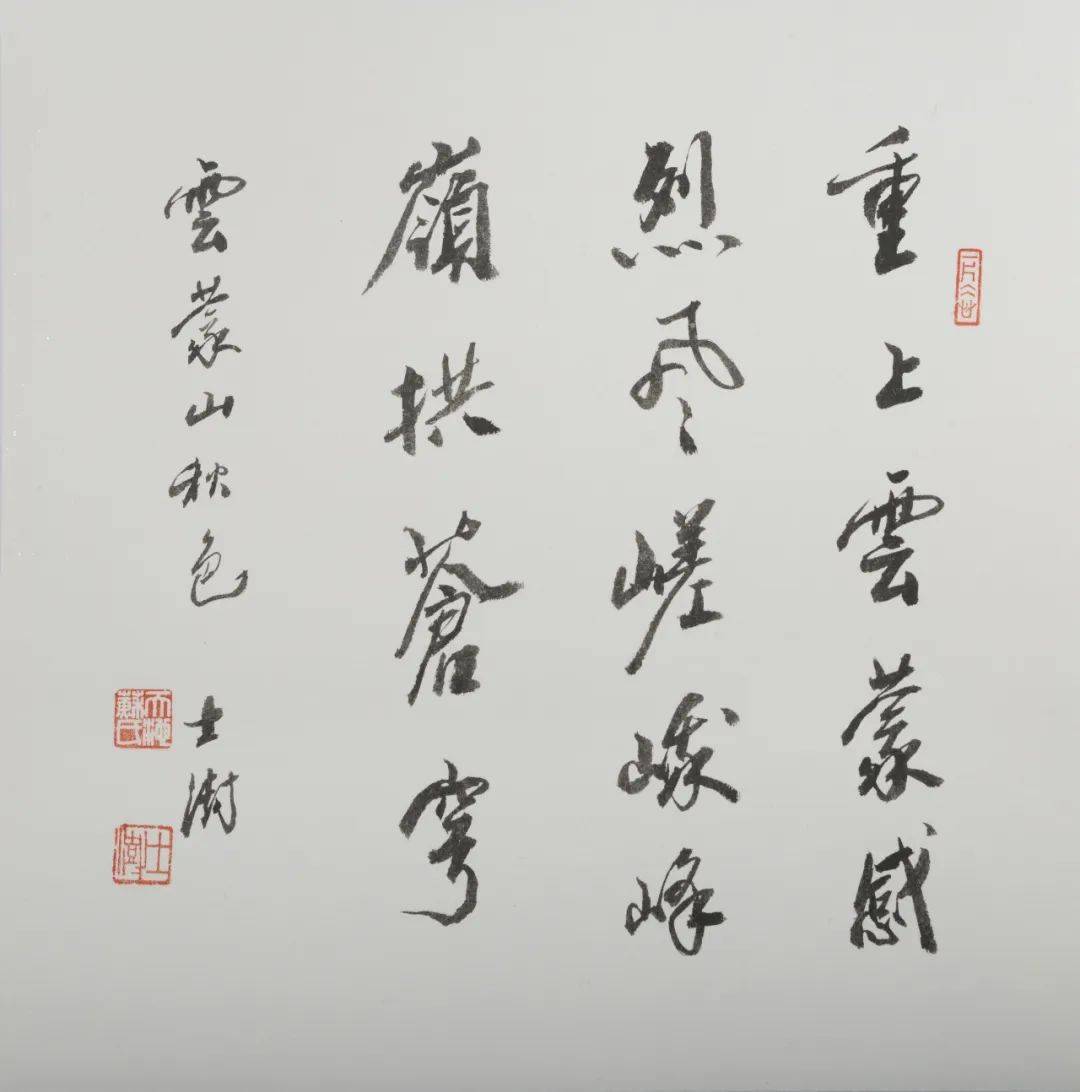 重上雲蒙感
烈風嵯峨峰
嶺拱蒼穹
雲蒙山秋色
士澍
士澍